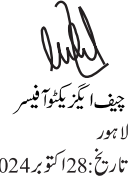 چیف ایگزیکٹو آفیسر
لاہور
تاریخ:28 اکتوبر 2024